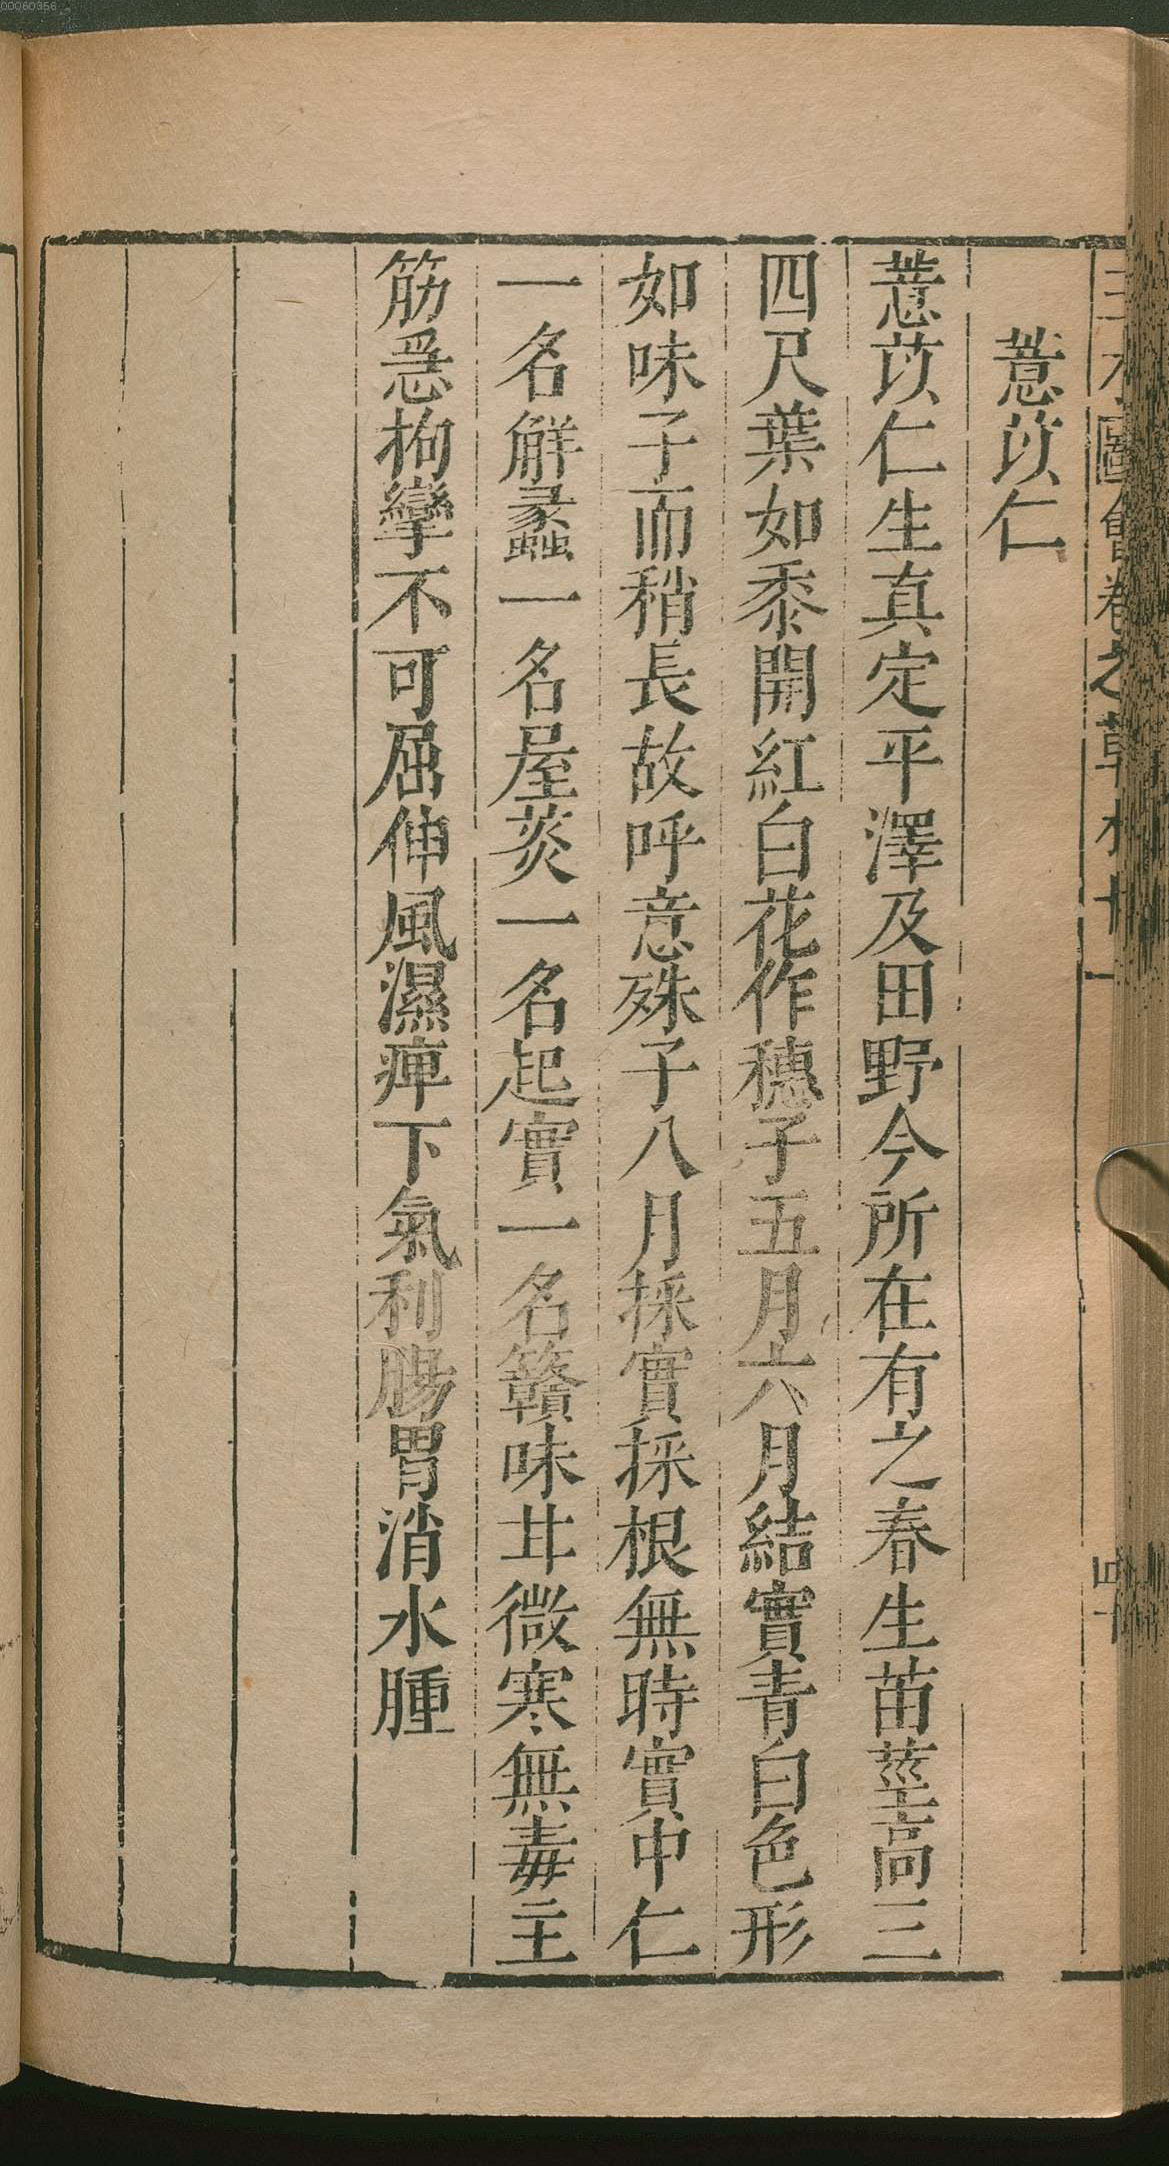 00060356
三才圖會卷之草木十一
四十
薏苡仁
薏苡仁生真定平澤及田野今所在有之春生苗莖高三
四尺葉如黍開紅白花作穗子五月六月結實青白色形
如味子而稍長故呼意殊子八月採實採根無時實中仁
一名解蠡一名屋菼一名起實一名贛味甘微寒無毒主
筋急拘攣不可屈伸風濕痺下氣利腸胃消水腫